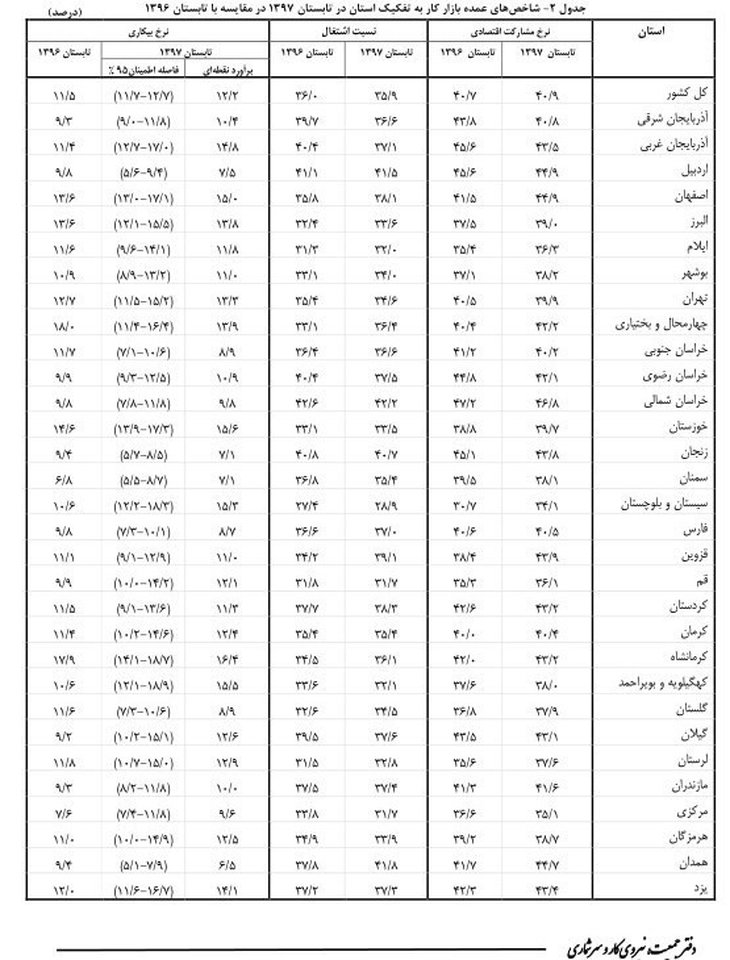 جدول ۲- شاخص‌های عمده بازار کار به تفکیک استان در تابستان ۱۳۹۷ در مقایسه با تابستان ۱۳۹۶
(درصد)
استان نرخ مشارکت اقتصادی نسبت اشتغال نرخ بیکاری
تابستان ۱۳۹۷ تابستان ۱۳۹۶ تابستان ۱۳۹۷ تابستان ۱۳۹۶ تابستان ۱۳۹۷ تابستان ۱۳۹۶
برآورد نقطه‌ای فاصله اطمینان ۹۵٪
کل کشور ۴۰/۹ ۴۰/۷ ۳۵/۹ ۳۶/۰ ۱۲/۲ (۱۱/۷-۱۲/۷) ۱۱/۵
آذربایجان شرقی ۴۰/۸ ۴۳/۸ ۳۶/۶ ۳۹/۷ ۱۰/۴ (۹/۰-۱۱/۸) ۹/۳
آذربایجان غربی ۴۳/۵ ۴۵/۶ ۳۷/۱ ۴۰/۴ ۱۴/۸ (۱۲/۷-۱۷/۰) ۱۱/۴
اردبیل ۴۴/۹ ۴۵/۶ ۴۱/۵ ۴۱/۱ ۷/۵ (۵/۶-۹/۴) ۹/۸
اصفهان ۴۴/۹ ۴۱/۵ ۳۸/۱ ۳۵/۸ ۱۵/۰ (۱۳/۰-۱۷/۱) ۱۳/۶
البرز ۳۹/۰ ۳۷/۵ ۳۳/۶ ۳۲/۴ ۱۳/۸ (۱۲/۱-۱۵/۵) ۱۳/۶
ایلام ۳۶/۳ ۳۵/۴ ۳۲/۰ ۳۱/۳ ۱۱/۸ (۹/۶-۱۴/۱) ۱۱/۶
بوشهر ۳۸/۲ ۳۷/۱ ۳۴/۰ ۳۳/۱ ۱۱/۰ (۸/۹-۱۳/۲) ۱۰/۹
تهران ۳۹/۹ ۴۰/۵ ۳۴/۶ ۳۵/۴ ۱۳/۳ (۱۱/۵-۱۵/۲) ۱۲/۷
چهارمحال و بختیاری ۴۲/۲ ۴۰/۴ ۳۶/۴ ۳۳/۱ ۱۳/۹ (۱۱/۴-۱۶/۴) ۱۸/۰
خراسان جنوبی ۴۰/۲ ۴۱/۲ ۳۶/۶ ۳۶/۴ ۸/۹ (۷/۱-۱۰/۶) ۱۱/۷
خراسان رضوی ۴۲/۱ ۴۴/۸ ۳۷/۵ ۴۰/۴ ۱۰/۹ (۹/۳-۱۲/۵) ۹/۹
خراسان شمالی ۴۶/۸ ۴۷/۲ ۴۲/۲ ۴۲/۶ ۹/۸ (۷/۸-۱۱/۸) ۹/۸
خوزستان ۳۹/۷ ۳۸/۸ ۳۳/۵ ۳۳/۱ ۱۵/۶ (۱۳/۹-۱۷/۳) ۱۴/۶
زنجان ۴۳/۸ ۴۵/۱ ۴۰/۷ ۴۰/۸ ۷/۱ (۵/۷-۸/۵) ۹/۴
سمنان ۳۸/۱ ۳۹/۵ ۳۵/۴ ۳۶/۸ ۷/۱ (۵/۵-۸/۷) ۶/۸
سیستان و بلوچستان ۳۴/۱ ۳۰/۷ ۲۸/۹ ۲۷/۴ ۱۵/۳ (۱۲/۲-۱۸/۳) ۱۰/۶
فارس ۴۰/۵ ۴۰/۶ ۳۷/۰ ۳۶/۶ ۸/۷ (۷/۳-۱۰/۱) ۹/۸
قزوین ۴۳/۹ ۳۸/۴ ۳۹/۱ ۳۴/۲ ۱۱/۰ (۹/۱-۱۲/۹) ۱۱/۱
قم ۳۶/۱ ۳۵/۳ ۳۱/۷ ۳۱/۸ ۱۲/۱ (۱۰/۰-۱۴/۲) ۹/۹
کردستان ۴۳/۲ ۴۲/۶ ۳۸/۳ ۳۷/۷ ۱۱/۳ (۹/۱-۱۳/۶) ۱۱/۵
کرمان ۴۰/۴ ۴۰/۰ ۳۵/۴ ۳۵/۴ ۱۲/۴ (۱۰/۲-۱۴/۶) ۱۱/۴
کرمانشاه ۴۳/۲ ۴۲/۰ ۳۶/۱ ۳۴/۵ ۱۶/۴ (۱۴/۱-۱۸/۷) ۱۷/۹
کهگیلویه و بویراحمد ۳۸/۰ ۳۷/۶ ۳۲/۱ ۳۳/۶ ۱۵/۵ (۱۲/۱-۱۸/۹) ۱۰/۶
گلستان ۳۷/۹ ۳۶/۸ ۳۴/۵ ۳۲/۶ ۸/۹ (۷/۳-۱۰/۶) ۱۱/۶
گیلان ۴۳/۱ ۴۳/۵ ۳۷/۶ ۳۹/۵ ۱۲/۶ (۱۰/۲-۱۵/۱) ۹/۲
لرستان ۳۷/۶ ۳۵/۶ ۳۲/۸ ۳۱/۵ ۱۲/۹ (۱۰/۷-۱۵/۰) ۱۱/۸
مازندران ۴۱/۶ ۴۱/۳ ۳۷/۴ ۳۷/۵ ۱۰/۰ (۸/۲-۱۱/۸) ۹/۳
مرکزی ۳۵/۱ ۳۶/۶ ۳۱/۷ ۳۳/۸ ۹/۶ (۷/۴-۱۱/۸) ۷/۶
هرمزگان ۳۸/۷ ۳۹/۲ ۳۳/۹ ۳۴/۹ ۱۲/۵ (۱۰/۰-۱۴/۹) ۱۱/۰
همدان ۴۴/۷ ۴۱/۷ ۴۱/۸ ۳۷/۸ ۶/۵ (۵/۱-۷/۹) ۹/۴
یزد ۴۳/۴ ۴۲/۳ ۳۷/۳ ۳۷/۲ ۱۴/۱ (۱۱/۶-۱۶/۷) ۱۲/۰
دفتر جمعیت، نیروی کار و سرشماری